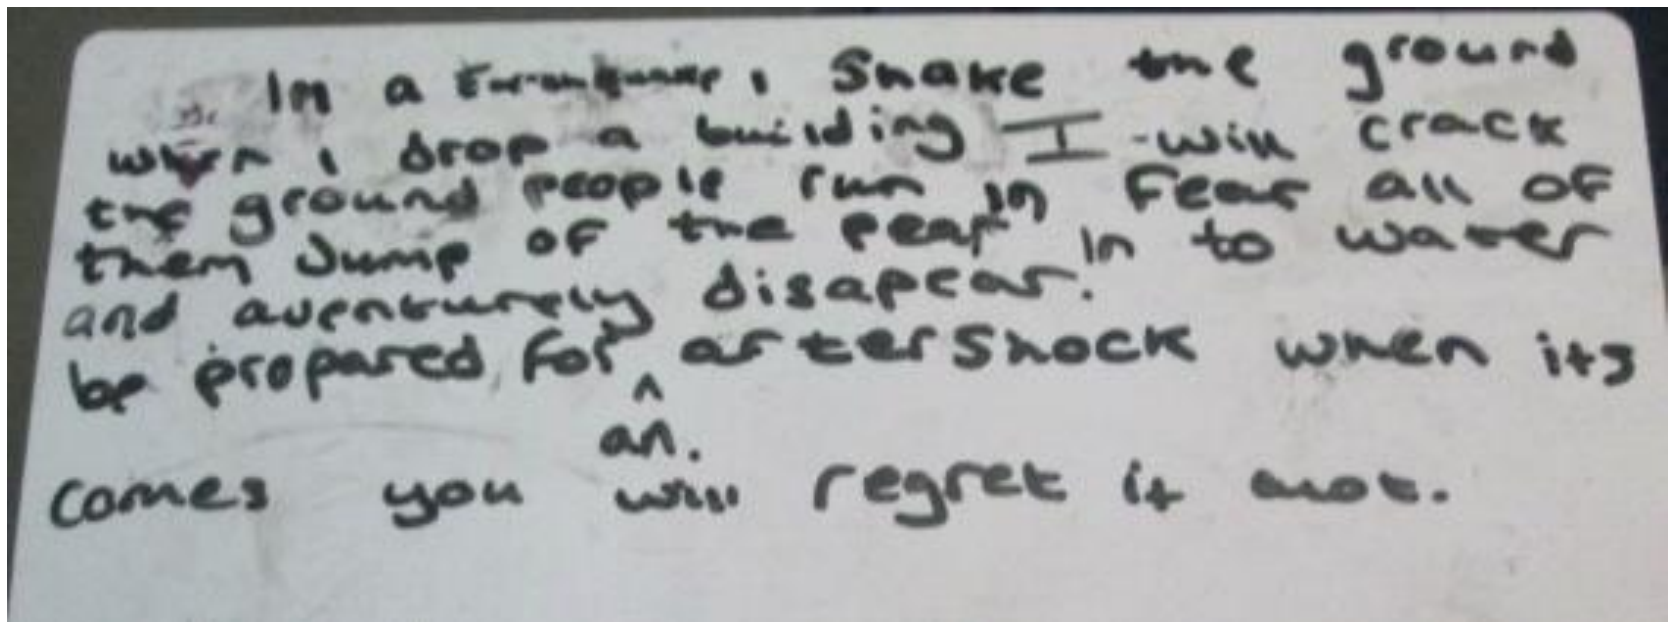 Im a Earthquake, Shake the ground
when i drop a building I will crack
the ground people run in Fear all of
them Jump of the pear in to water
and aventurely disapear.
be prepared for an. aftershock when its
comes you will regret it alot.